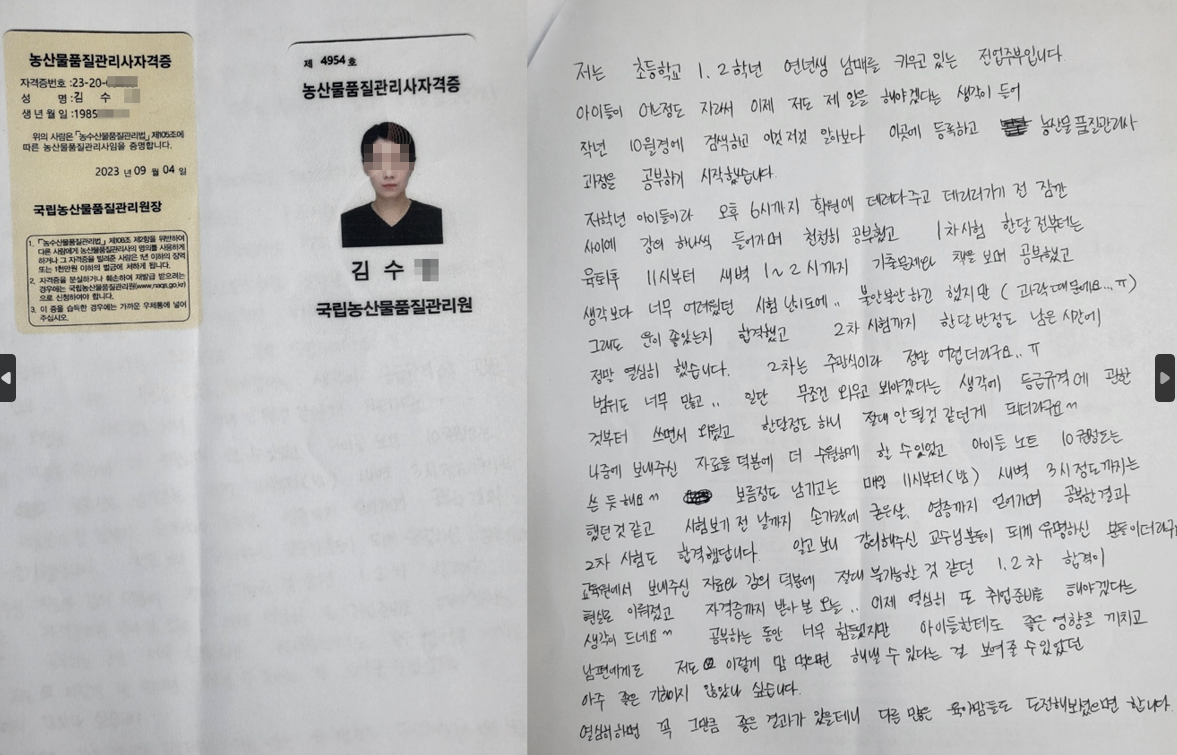 농산물품질관리사자격증
자격증번호 :23-20-
성 명 :김 수
생 년 월 일 :1985
위의 사람은 「농수산물품질관리법」 제105조에
따른 농산물품질관리사임을 증명합니다.
2023 년 09 월 04 일
국립농산물품질관리원장
1. 「농수산물품질관리법」 제108조 제2항을 위반하여
다른 사람에게 농산물품질관리사의 명의를 사용하게
하거나 그 자격증을 빌려준 사람은 1년 이하의 징역
또는 1천만원 이하의 벌금에 처하게 됩니다.
2. 자격증을 분실하거나 훼손하여 재발급 받으려는
경우에는 국립농산물품질관리원(www.naqs.go.kr)
으로 신청하여야 합니다.
3. 이 증을 습득한 경우에는 가까운 우체통에 넣어
주십시오.
제 4954 호
농산물품질관리사자격증
김 수
국립농산물품질관리원
저는 초등학교 1, 2학년 연년생 남매를 키우고 있는 전업주부입니다.
아이들이 어느정도 자라서 이제 저도 제 일을 해야겠다는 생각이 들어
작년 10월경에 검색하고 이것 저것 알아보다 이곳에 등록하고 농산물 품질관리사
과정을 공부하게 시작했습니다.
저학년 아이들이라 오후 6시까지 학원에 데려다주고 데리러가기 전 잠깐
사이에 강의 하나씩 들어가며 천천히 공부했고 1차시험 한달 전부터는
육퇴후 11시부터 새벽 1~2시까지 기출문제와 책을 보며 공부했고
생각보다 너무 어려웠던 시험 난이도에.. 불안불안 하긴 했지만 (과락때문에요...ㅠ)
그래도 운이 좋았는지 합격했고 2차 시험까지 한달 반정도 남은 시간에
정말 열심히 했습니다. 2차는 주관식이라 정말 어렵더라구요..ㅠ
범위도 너무 많고.. 일단 무조건 외우고 봐야겠다는 생각에 등급규격에 관한
것부터 쓰면서 외웠고 한달정도 하니 절대 안 될것 같던게 되더라구요~
나중에 보내주신 자료들 덕분에 더 수월하게 할 수 있었고 아이들 노트 10권정도는
쓴 듯해요 ^^ 보름정도 남기고는 매일 11시부터(밤) 새벽 3시정도까지는
했던 것 같고 시험보기 전 날까지 손가락에 굳은살, 염증까지 얻어가며 공부한 결과
2차 시험도 합격했답니다. 알고 보니 강의해주신 교수님분들이 되게 유명하신 분들이더라구
교육원에서 보내주신 자료와 강의 덕분에 절대 불가능한 것 같던 1, 2차 합격이
현실로 이뤄졌고 자격증까지 받아 본 오늘.. 이제 열심히 또 취업준비를 해야겠다는
생각이 드네요~ 공부하는 동안 너무 힘들었지만 아이들한테도 좋은 영향을 끼치고
남편에게도 저도 이렇게 맘 먹으면 해낼 수 있다는 걸 보여줄 수 있었던
아주 좋은 기회이지 않았나 싶습니다.
열심히하면 꼭 그만큼 좋은 결과가 있을테니 다른 많은 육아맘들도 도전해보셨으면 합니다.